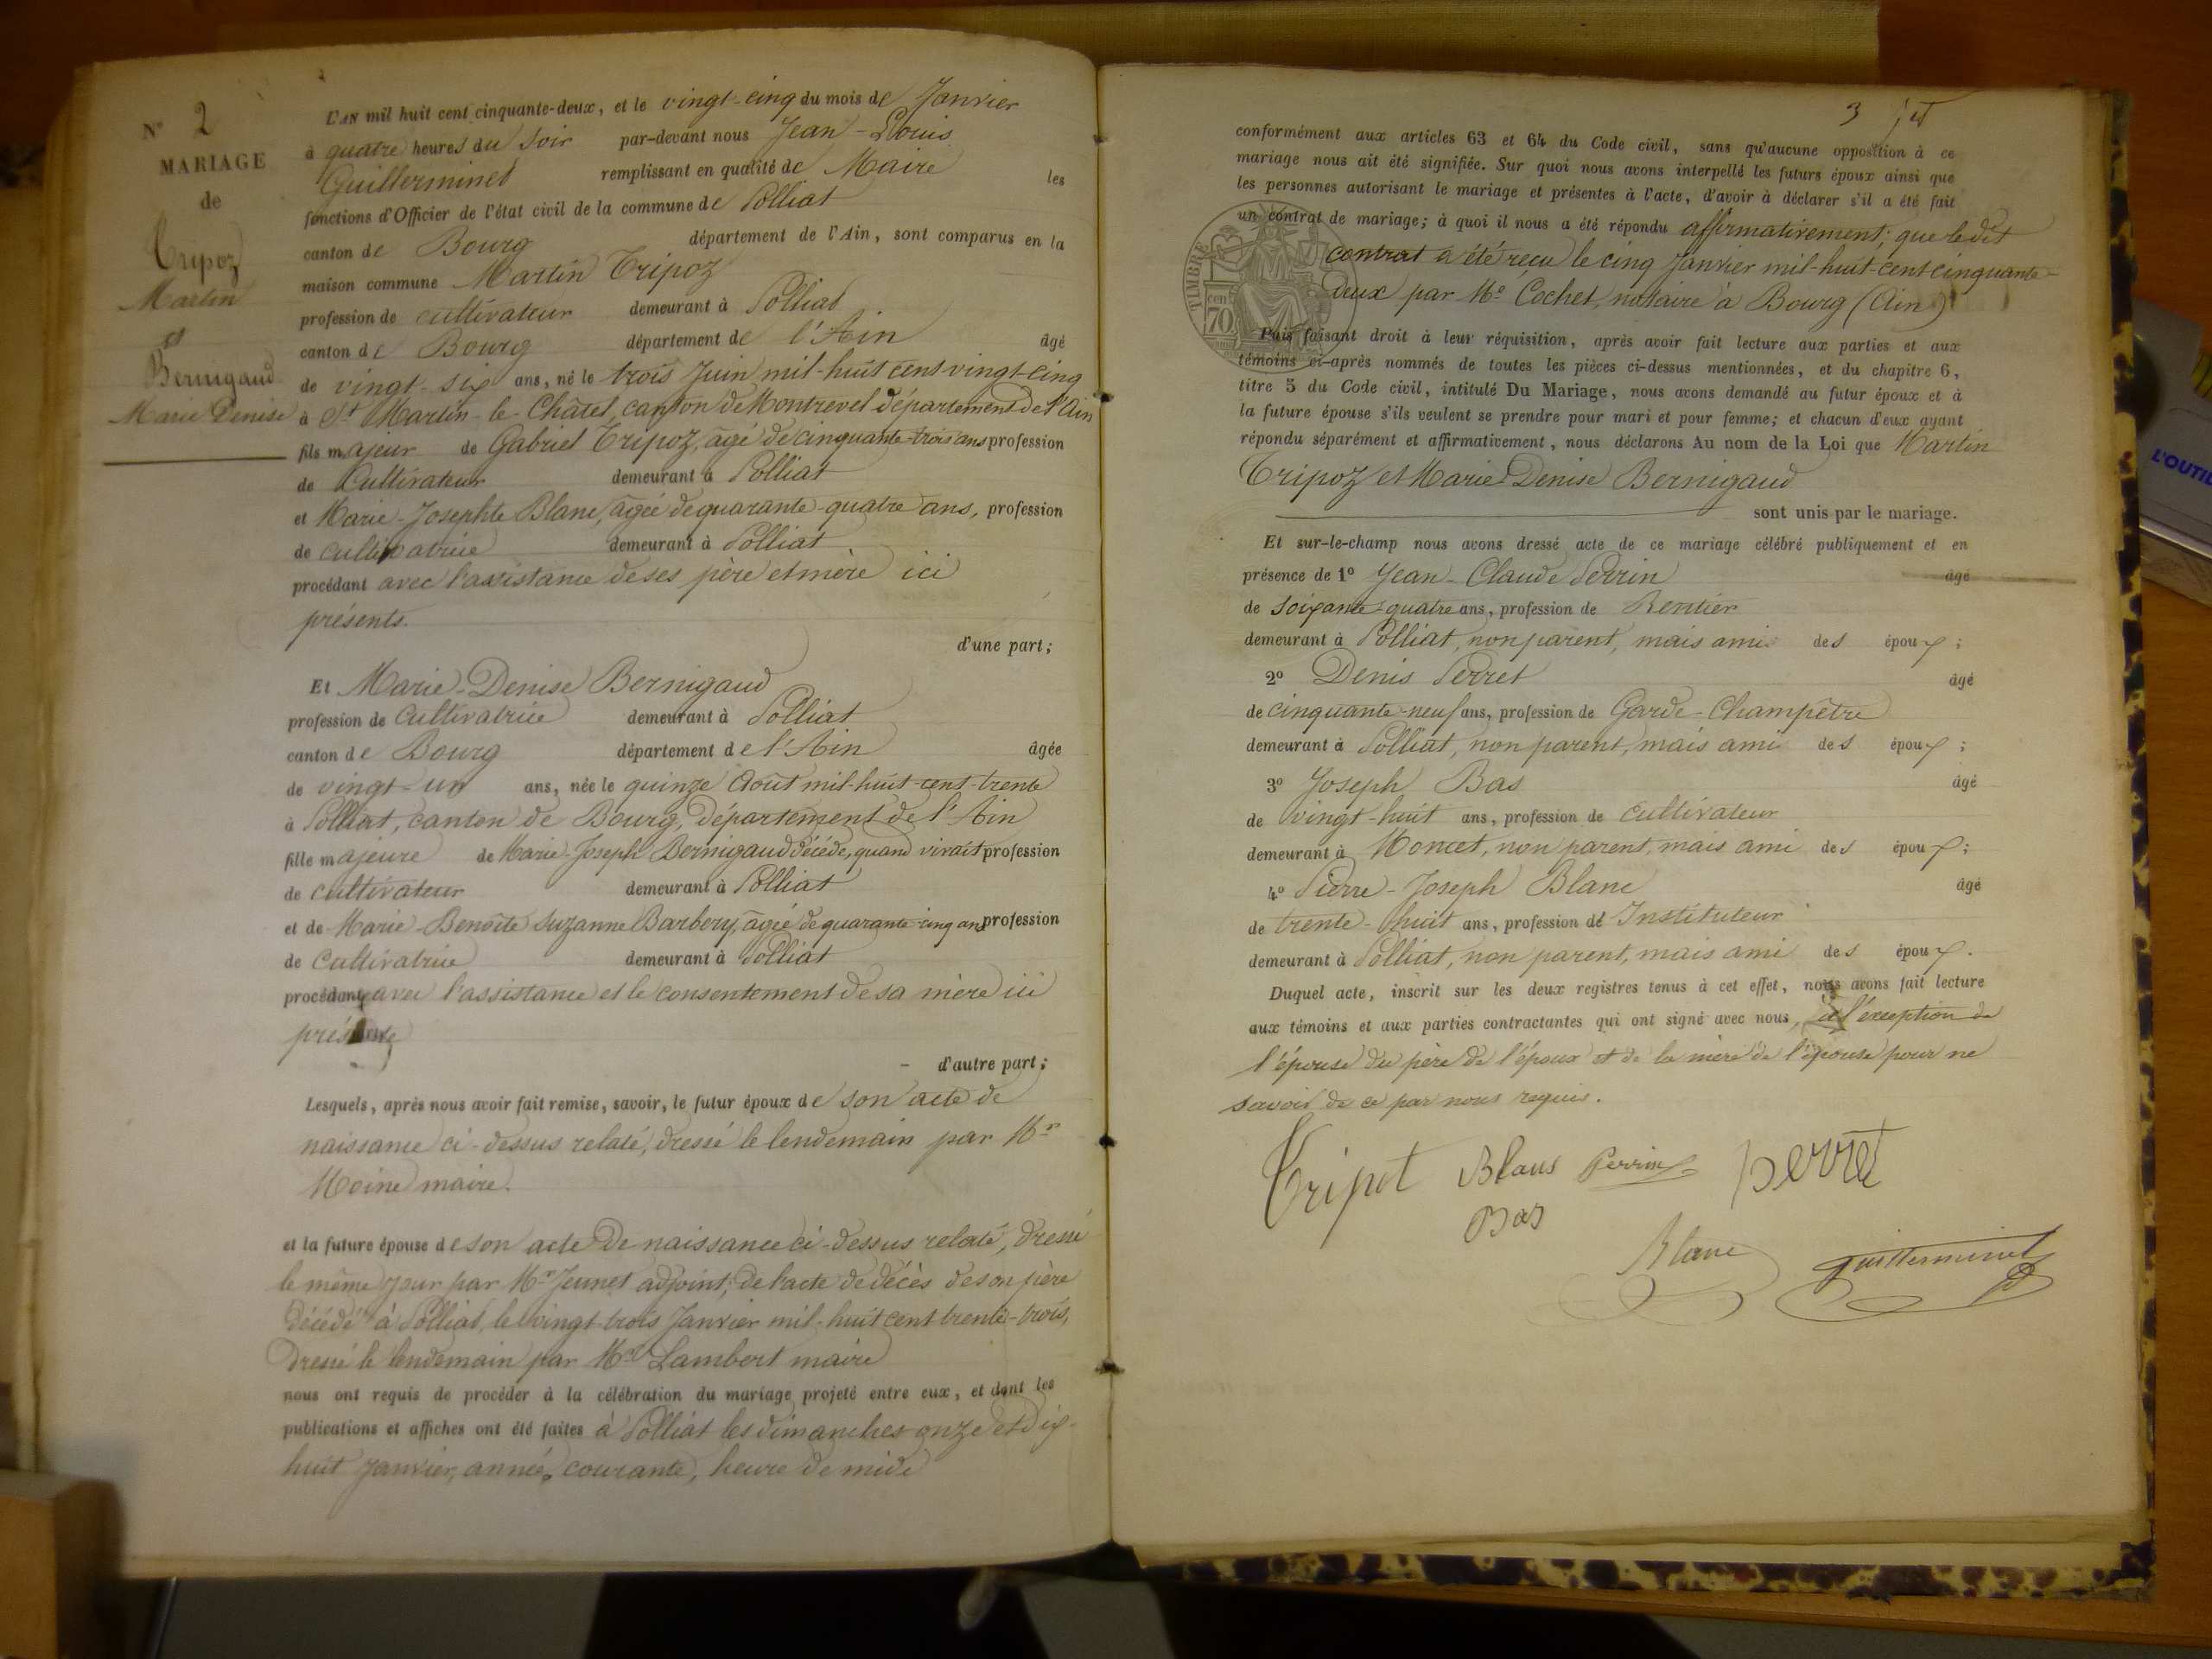 N° 2
MARIAGE
de
Tripoz
Martin
et
Bernigaud
Marie Denise
L'AN mil huit cent cinquante-deux, et le vingt-cinq du mois de Janvier
à quatre heures du soir par-devant nous Jean-Louis
Guillerminet remplissant en qualité de Maire les
fonctions d'Officier de l'état civil de la commune de Polliat
canton de Bourg département de l'Ain, sont comparus en la
maison commune Martin Tripoz
profession de cultivateur demeurant à Polliat
canton de Bourg département de l'Ain âgé
de vingt-six ans, né le trois Juin mil-huit cent vingt-cinq
à St Martin-le-Châtel, canton de Montrevel département de l'Ain
fils majeur de Gabriel Tripoz, âgé de cinquante-trois ans profession
de Cultivateur demeurant à Polliat
et Marie-Josephte Blanc, âgée de quarante-quatre ans, profession
de cultivatrice demeurant à Polliat
procédant avec l'assistance de ses père et mère ici
présents.
d'une part;
Et Marie-Denise Bernigaud
profession de Cultivatrice demeurant à Polliat
canton de Bourg département de l'Ain âgée
de vingt-un ans, née le quinze Août mil-huit-cent-trente
à Polliat, canton de Bourg, Département de l'Ain
fille majeure de Marie-Joseph Bernigaud décédé, quand vivait profession
de cultivateur demeurant à Polliat
et de Marie-Benoîte Suzanne Barbery, âgée de quarante-cinq ans profession
de Cultivatrice demeurant à Polliat
procédant avec l'assistance et le consentement de sa mère ici
présente
d'autre part;
Lesquels, après nous avoir fait remise, savoir, le futur époux de son acte de
naissance ci-dessus relaté, dressé le lendemain par Mr
Moine maire.
et la future épouse de son acte de naissance ci-dessus relaté, dressé
le même jour par Mr Jeunet adjoint; de l'acte de décès de son père
décédé à Polliat, le vingt-trois Janvier mil-huit cent trente-trois,
dressé le lendemain par Mr Lambert maire
nous ont requis de procéder à la célébration du mariage projeté entre eux, et dont les
publications et affiches ont été faites à Polliat les dimanches onze et dix-
huit Janvier, année courante, heure de midi
3
conformément aux articles 63 et 64 du Code civil, sans qu'aucune opposition à ce
mariage nous ait été signifiée. Sur quoi nous avons interpellé les futurs époux ainsi que
les personnes autorisant le mariage et présentes à l'acte, d'avoir à déclarer s'il a été fait
un contrat de mariage; à quoi il nous a été répondu affirmativement; que ledit
contrat a été reçu le cinq Janvier mil-huit-cent cinquante-
deux par Me Cochet, notaire à Bourg (Ain)
TIMBRE
70 cen
Puis faisant droit à leur réquisition, après avoir fait lecture aux parties et aux
témoins ci-après nommés de toutes les pièces ci-dessus mentionnées, et du chapitre 6,
titre 5 du Code civil, intitulé Du Mariage, nous avons demandé au futur époux et à
la future épouse s'ils veulent se prendre pour mari et pour femme; et chacun d'eux ayant
répondu séparément et affirmativement, nous déclarons Au nom de la Loi que Martin
Tripoz et Marie Denise Bernigaud
sont unis par le mariage.
Et sur-le-champ nous avons dressé acte de ce mariage célébré publiquement et en
présence de 1° Jean-Claude Perrin âgé
de soixante-quatre ans, profession de Rentier
demeurant à Polliat, non parent, mais ami des époux;
2° Denis Perret âgé
de cinquante-neuf ans, profession de Garde-Champêtre
demeurant à Polliat, non parent, mais ami des époux;
3° Joseph Bas âgé
de vingt-huit ans, profession de cultivateur
demeurant à Moncet, non parent, mais ami des époux;
4° Pierre-Joseph Blanc âgé
de trente-huit ans, profession de Instituteur
demeurant à Polliat, non parent, mais ami des époux.
Duquel acte, inscrit sur les deux registres tenus à cet effet, nous avons fait lecture
aux témoins et aux parties contractantes qui ont signé avec nous, à l'exception de
l'épouse du père de l'époux et de la mère de l'épouse pour ne
savoir de ce par nous requis.
Tripot Blanc Perrin perret
Bas
Blanc guillerminet
L'OUTIL